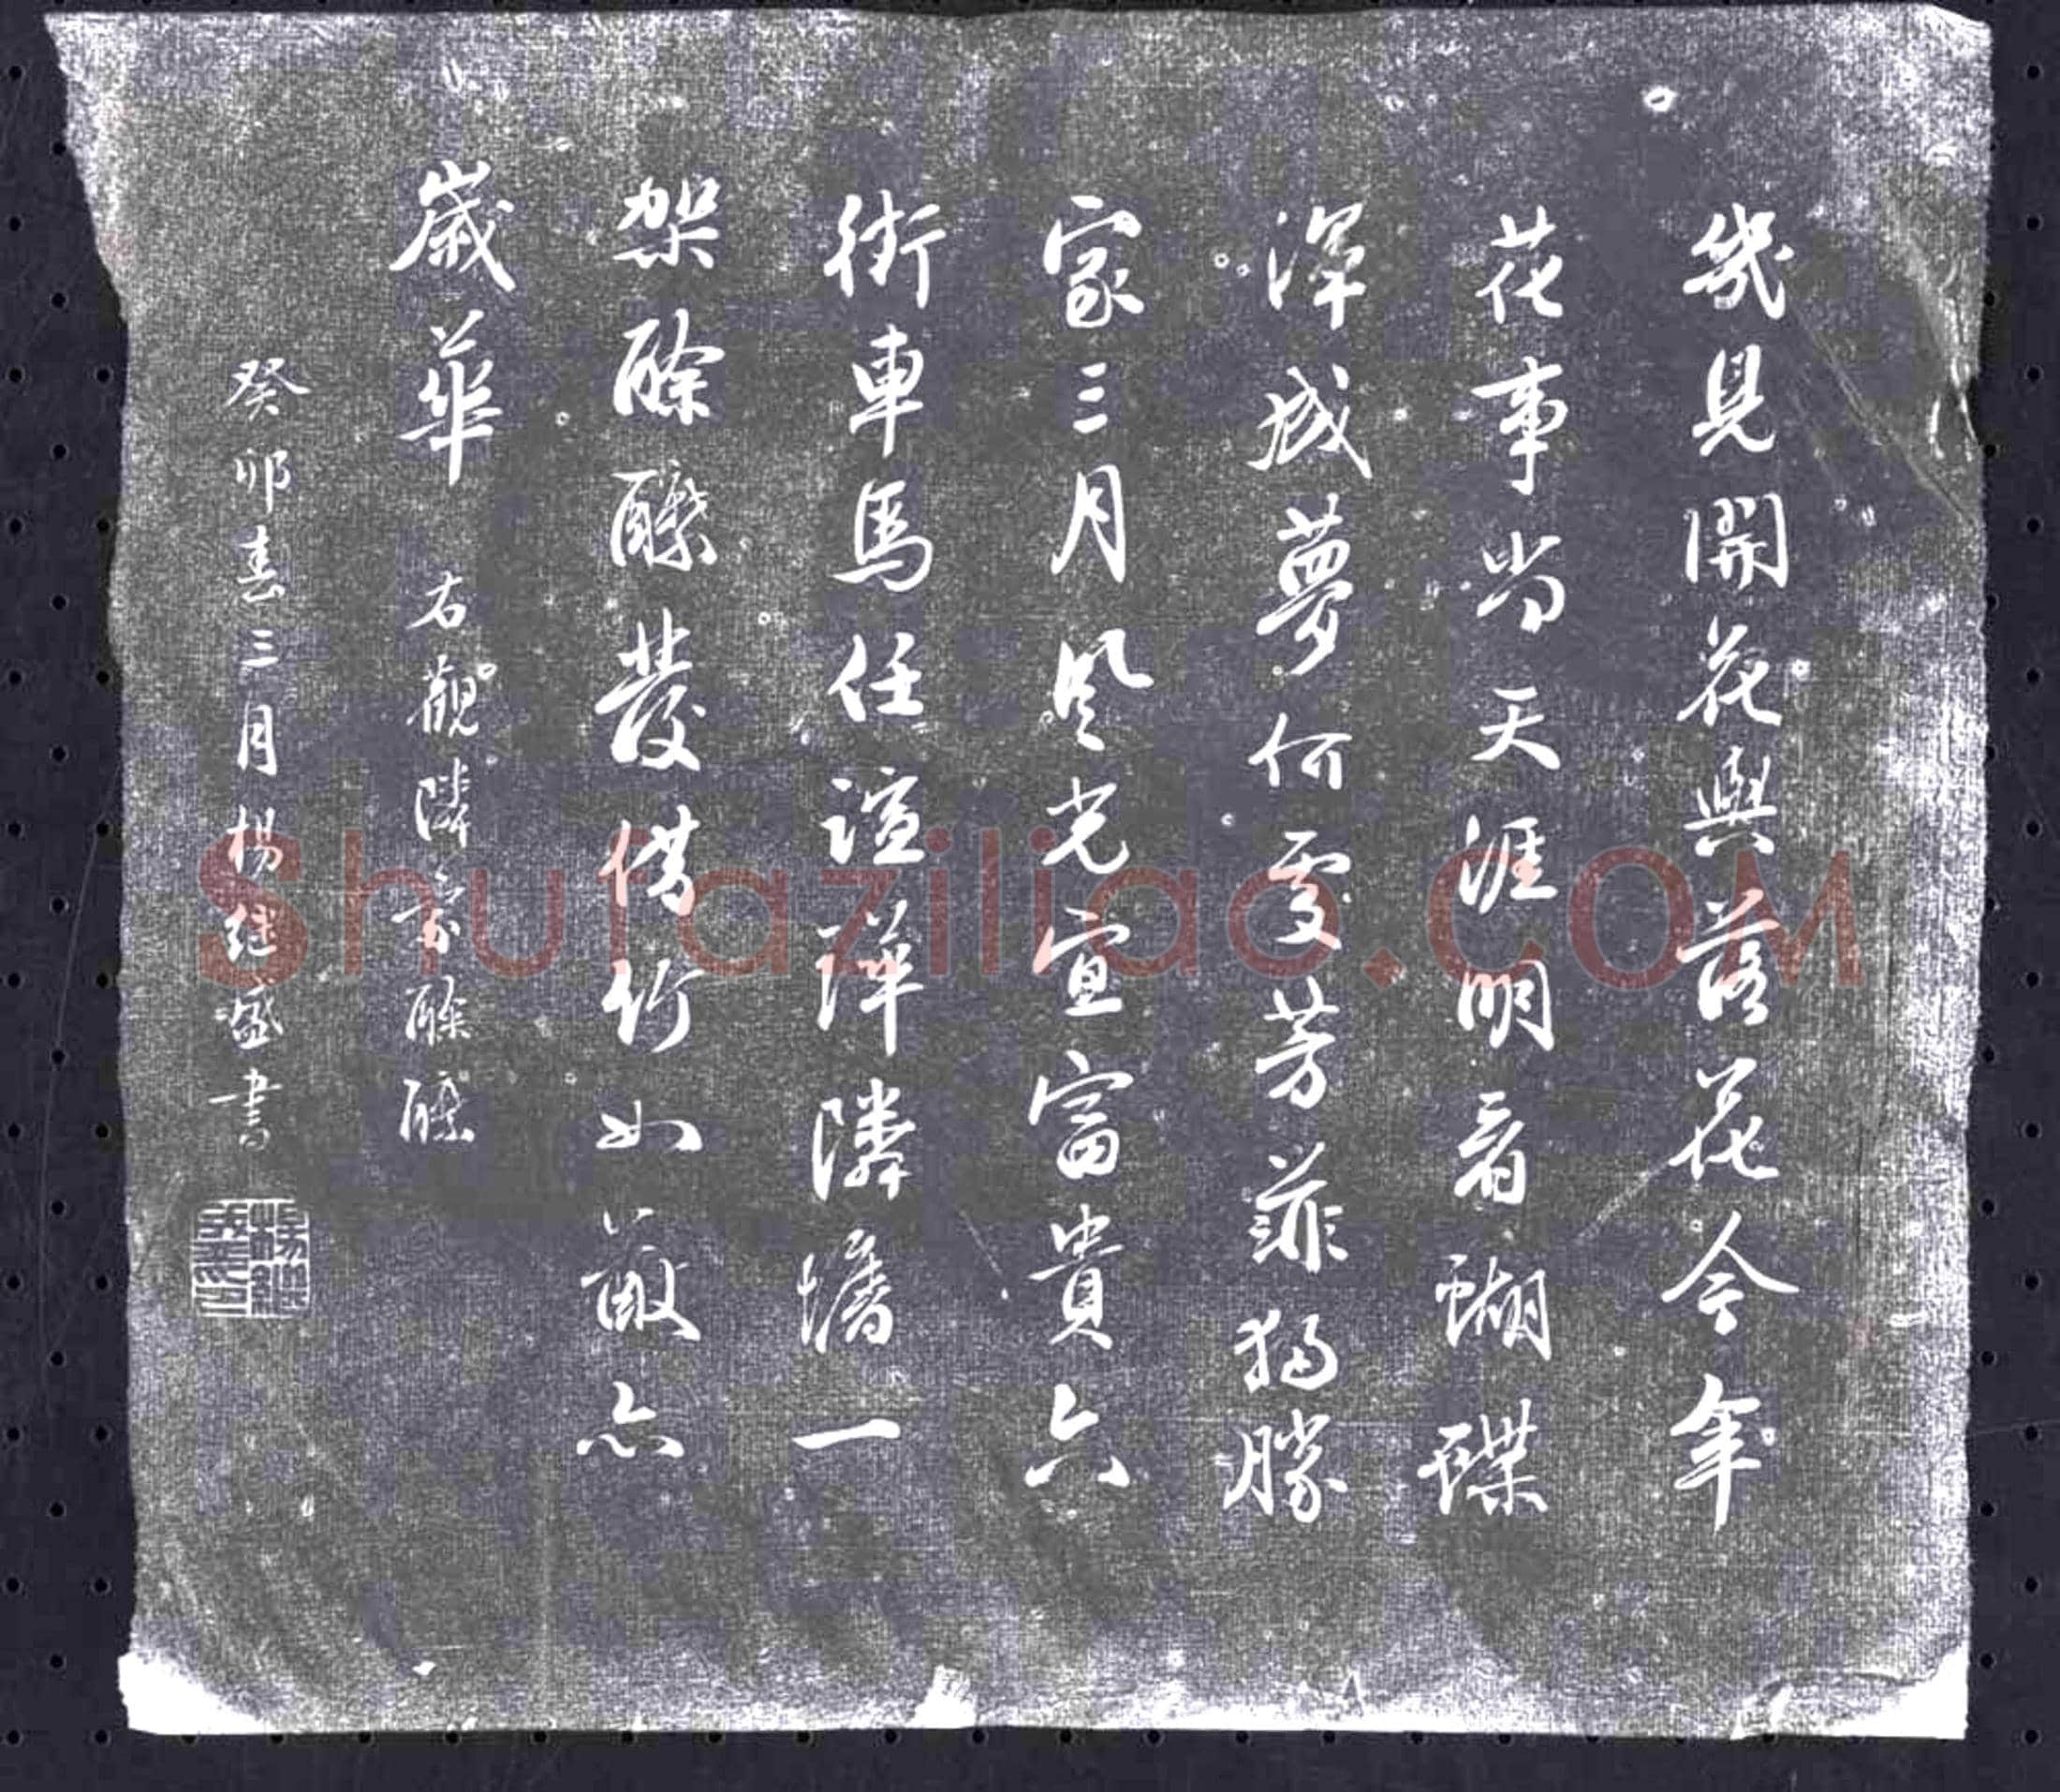 幾見開花與落花今年
花事尚天涯明看蝴蝶
渾成夢何處芳菲獨勝
家三月風光宜富貴六
街車馬任諠譁隣墻一
架酴醾發借竹如簃亦
歲華 右觀隣家酴醾
癸卯春三月楊继盛書
楊繼盛印
Shufaziliao.COM